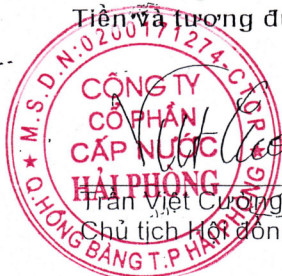 Tiền và tương đư
M.S.D.N:0200171274-C.T.C.P
CÔNG TY
CỔ PHẦN
CẤP NƯỚC
HẢI PHÒNG
Q.HỒNG BÀNG T.P HẢI PHÒNG
Trần Việt Cường
Chủ tịch Hội đồn